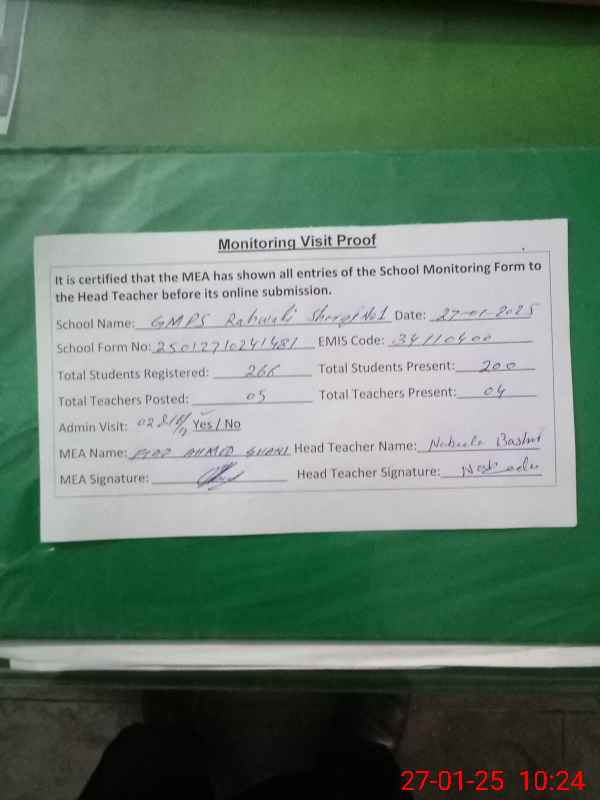 Monitoring Visit Proof
It is certified that the MEA has shown all entries of the School Monitoring Form to
the Head Teacher before its online submission.
School Name: GMPS Rahwali Sharqi No1 Date: 27-01-2025
School Form No: 25012710241481 EMIS Code: 34110400
Total Students Registered: 266 Total Students Present: 200
Total Teachers Posted: 05 Total Teachers Present: 04
Admin Visit: Yes / No
MEA Name: AHMED GHANI Head Teacher Name: Nabeela Bashir
MEA Signature: Head Teacher Signature:
27-01-25 10:24